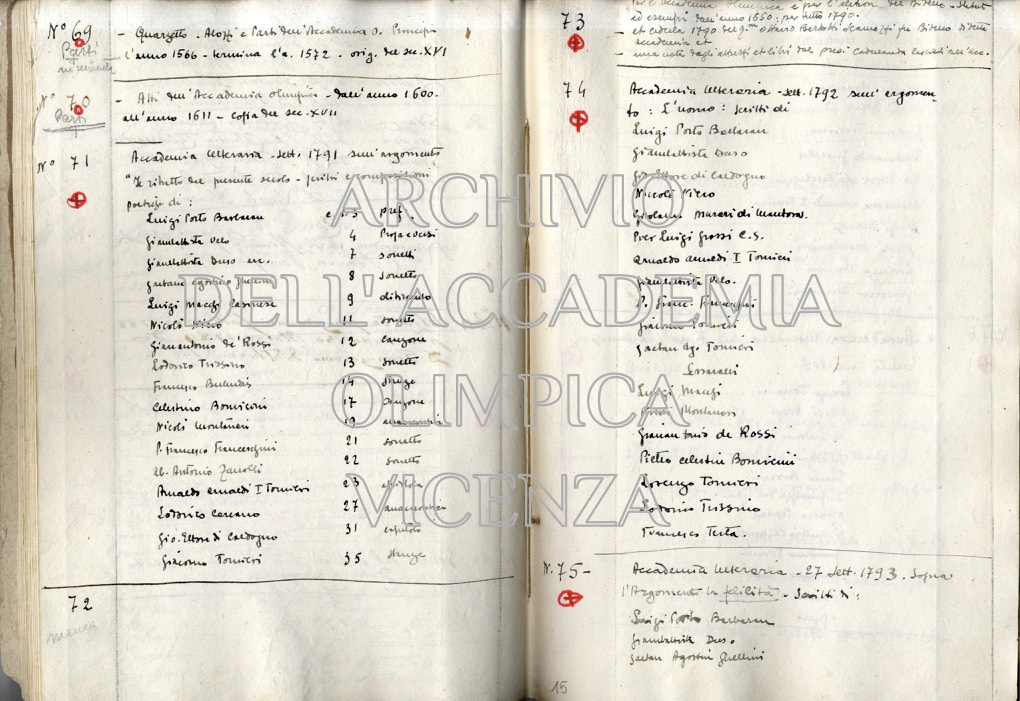 N° 69
Parti
in serivola
- Quarzetto - Atozzi e Parti dell'Accademia O. Principia
l'anno 1566 - termina l'a. 1572 - orig. del sec. XVI
N° 70
Parti
- Atti dell'Accademia Olimpica - dall'anno 1600-
all'anno 1611 - Copia del sec. XVII
N° 71
Accademia letteraria - Sett. 1791 sull'argomento
"Il ritratto del presente secolo - scritti e composizioni
poetiche di :
Luigi Porto Barbaran c 1.3 pref.
Giambattista Velo 4 Prosa e versi
Giambattista Duso 7 sonetti
Gaetano Agostino 8 sonetto
Luigi Macchi 9 ditirambo
Nicolò 11 sonetto
Giannantonio de' Rossi 12 canzone
Lodovico Trissino 13 sonetto
Francesco 14 stanze
Celestino Bonvicini 17 canzone
Nicolò Montanari 19
P. Francesco Franceschini 21 sonetto
Ab. Antonio 22 sonetto
Arnaldo Arnaldi I Tornieri 23
Lodovico 27
Gio. Ettore di Caldogno 31
Giacomo Tornieri 35 stanze
72
manca
73
per l'elezion del Bidello - Statuti
ed esempi dall'anno 1650 : per tutto 1790.
- et cedola 1790 del Ottavio Bertotti Scamozzi per Bidello
accademia et
- una nota degli attrezzi et libri
74
Accademia letteraria - Sett. 1792 sull'argomen-
to : L'uomo : scritti di
Luigi Porto Barbaran
Giambattista Duso
Gio. Ettore di Caldogno
Nicolò
Girolamo Murari di Mantova.
Pier Luigi Grossi C.S.
Arnaldo Arnaldi I Tornieri
Giambattista Velo.
P. Franc. Franceschini
Giacomo Tornieri
Gaetan Ag. Tornieri
Luigi Macchi
Montanari
Giannantonio de Rossi
Pietro Celestin Bonvicini
Lorenzo Tornieri
Lodovico Trissino
Francesco Testa.
N. 75 -
Accademia letteraria - 27 Sett. 1793. Sopra
l'Argomento la felicità - Scritti di :
Luigi Porto Barbaran
Giambattista Duso
Gaetan Agostin Ghellini
15
ARCHIVIO
DELL'ACCADEMIA
OLIMPICA
VICENZA